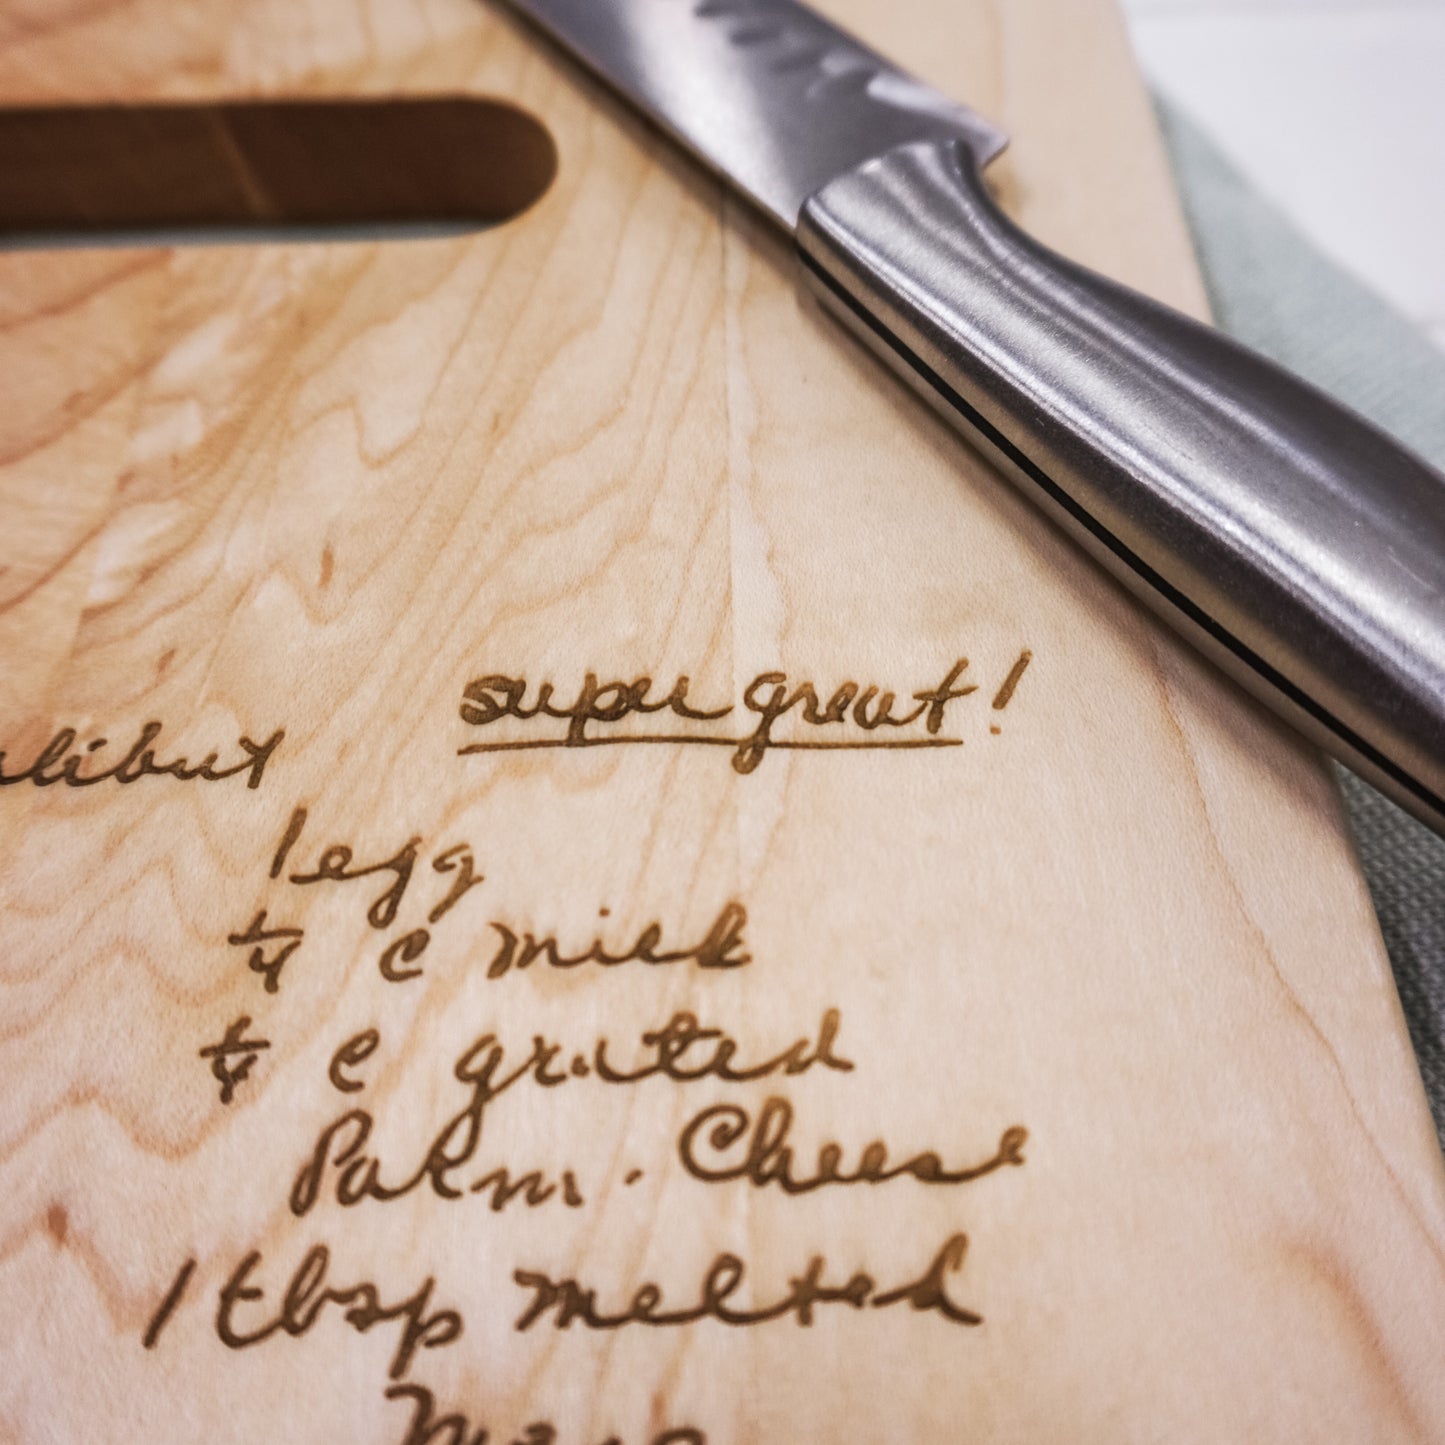 super great!
alibut
1 egg
1/4 c milk
1/4 c grated
Parm. Cheese
1 tbsp melted